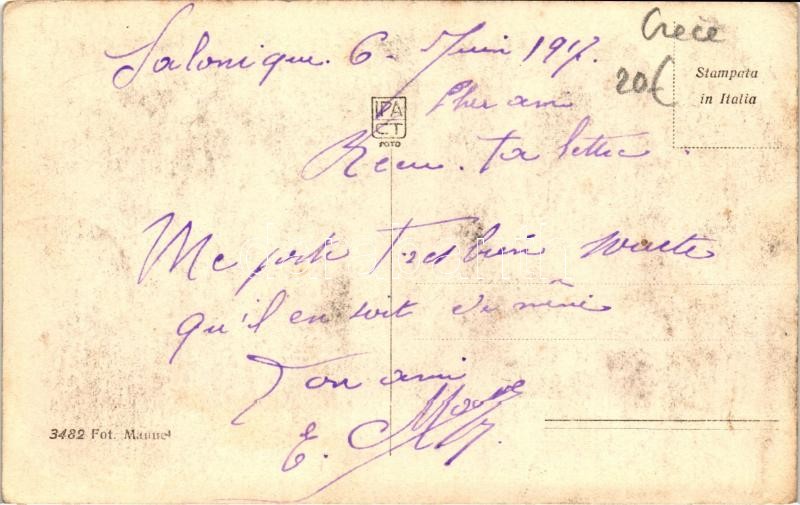 Salonique. 6. Juin 1917.
Grece
20€
Stampata
in Italia
IPA
CT
FOTO
Cher ami
Recu. ta lettre.
Me porte Tres bien
qu'il en soit de même
Ton ami
E.
3482 Fot. Manuel